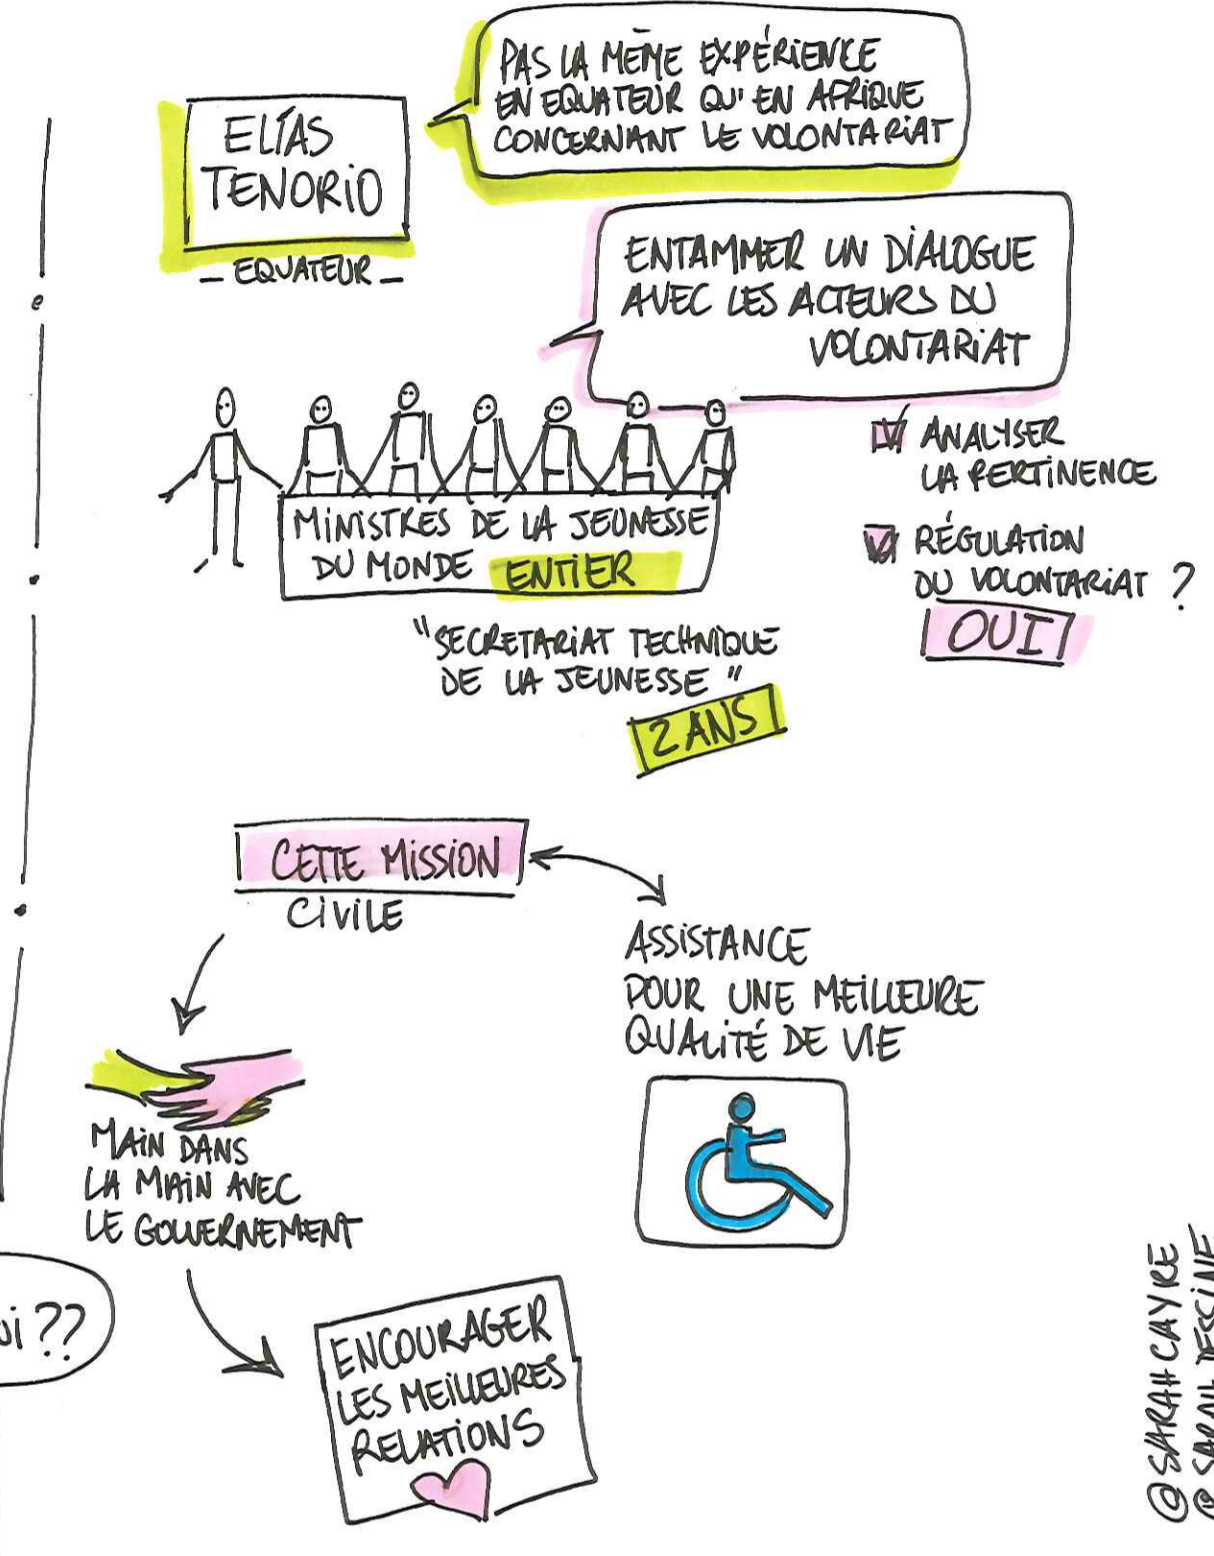 ELÍAS
TENORIO
_ EQUATEUR _
PAS LA MÊME EXPÉRIENCE
EN EQUATEUR QU'EN AFRIQUE
CONCERNANT LE VOLONTARIAT
ENTAMMER UN DIALOGUE
AVEC LES ACTEURS DU
VOLONTARIAT
ANALYSER
LA PERTINENCE
RÉGULATION
DU VOLONTARIAT ?
OUI
MINISTRES DE LA JEUNESSE
DU MONDE ENTIER
"SECRETARIAT TECHNIQUE
DE LA JEUNESSE"
2 ANS
CETTE MISSION
CIVILE
ASSISTANCE
POUR UNE MEILLEURE
QUALITÉ DE VIE
MAIN DANS
LA MAIN AVEC
LE GOUVERNEMENT
ui ??
ENCOURAGER
LES MEILLEURES
RELATIONS
@SARAHCAYRE
@SARAH DESSINE